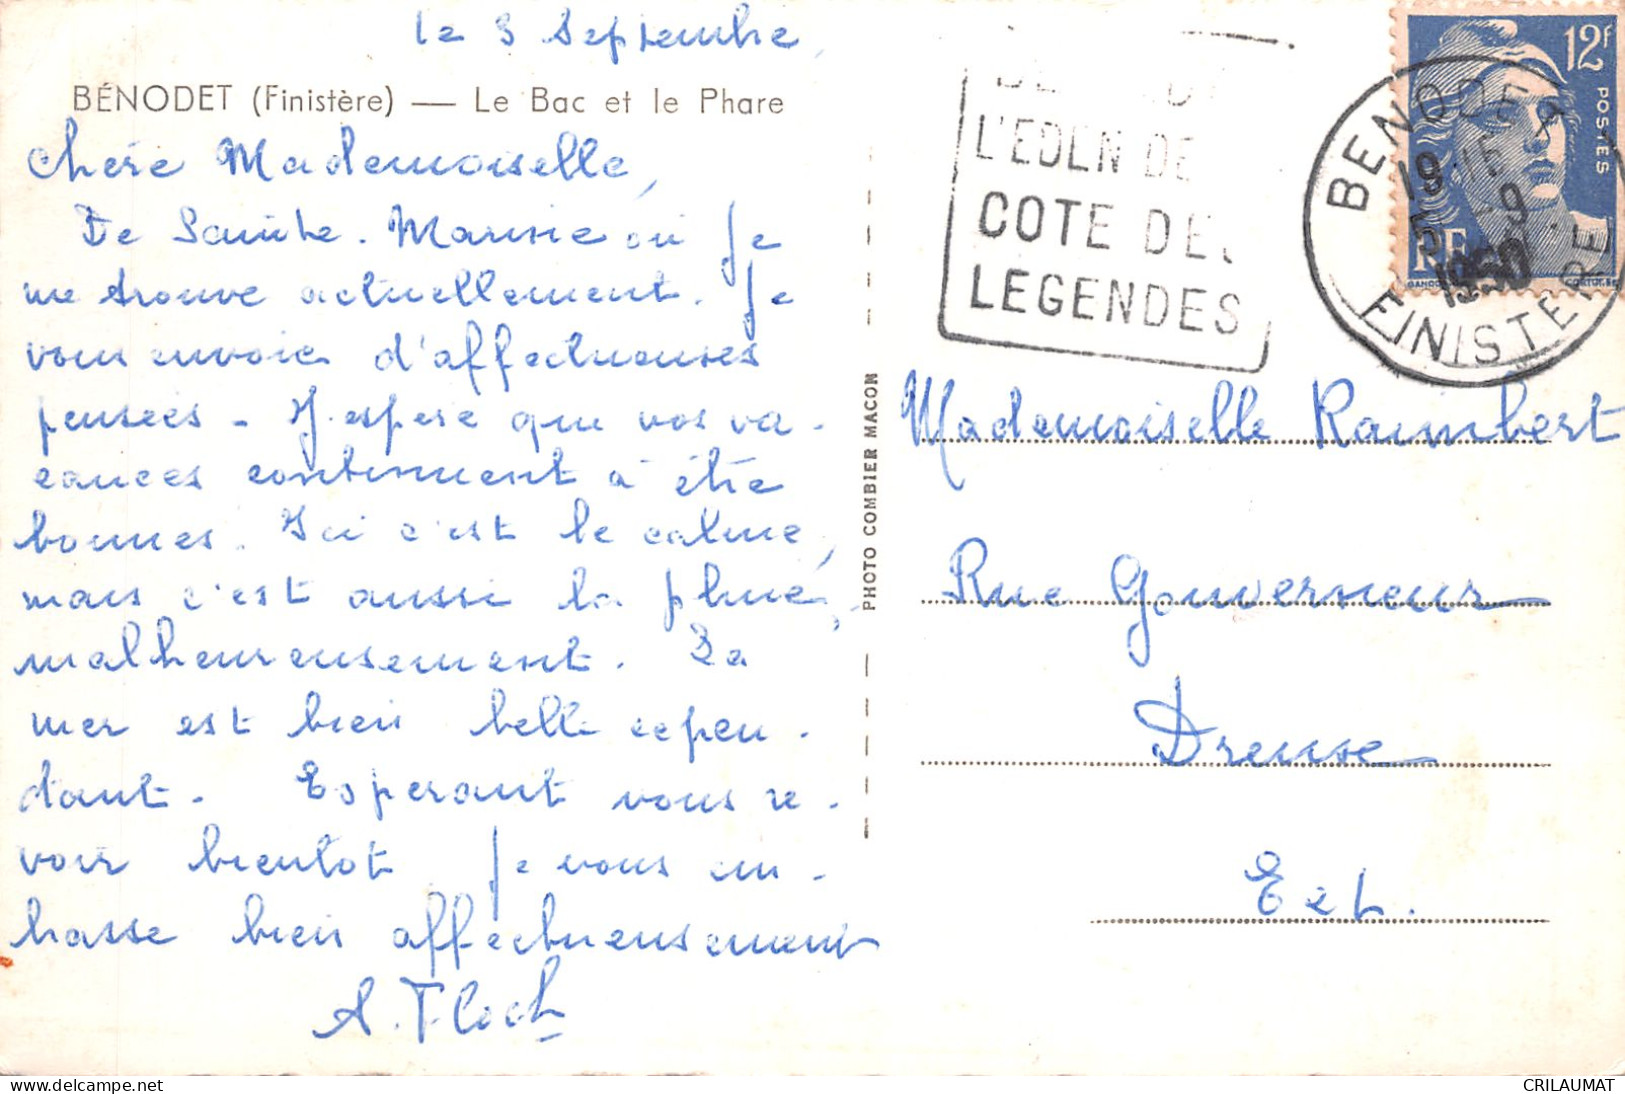 le 3 Septembre,
BÉNODET (Finistère) — Le Bac et le Phare
Chère Mademoiselle,
De Sainte-Marine où je
me trouve actuellement. Je
vous envoie d'affectueuses
pensées - J'espère que vos va-
cances continuent à être
bonnes. Ici c'est le calme,
mais c'est aussi la pluie,
malheureusement. La
mer est bien belle cepen-
dant. Espérant vous re-
voir bientôt je vous em-
brasse bien affectueusement
A. Floch
PHOTO COMBIER MACON
L'EDEN DE
COTE DE
LEGENDES
12f
POSTES
RF
GANDON
BENODET
18 15
5 -9
1950
FINISTERE
Mademoiselle Raimbert
Rue Gouverneur
Dreuse
E et L.
CRILAUMAT